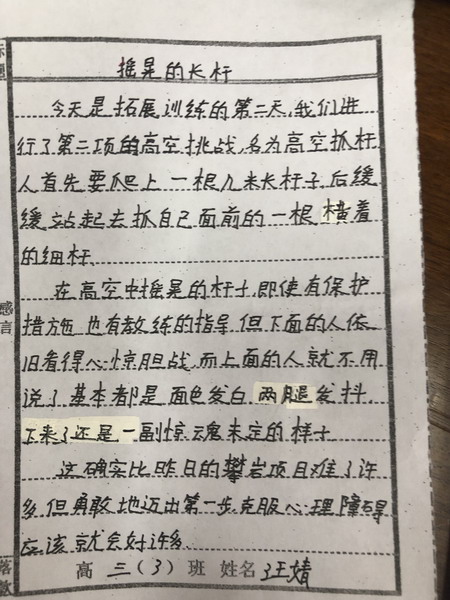 标题
摇晃的长杆
今天是拓展训练的第二天,我们进
行了第二项的高空挑战,名为高空抓杆,
人首先要爬上一根几米长杆子,后缓
缓站起去抓自己面前的一根横着
的细杆.
在高空中摇晃的杆子,即使有保护
措施,也有教练的指导,但下面的人依
旧看得心惊胆战,而上面的人就不用
说了,基本都是面色发白,两腿发抖,
下来了还是一副惊魂未定的样子.
这确实比昨日的攀岩项目难了许
多,但勇敢地迈出第一步,克服心理障碍
应该就会好许多.
感言
落款
高三(3)班 姓名 汪婧